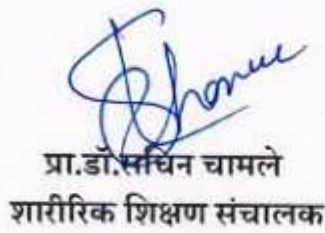 प्रा.डॉ.सचिन चामले
शारीरिक शिक्षण संचालक